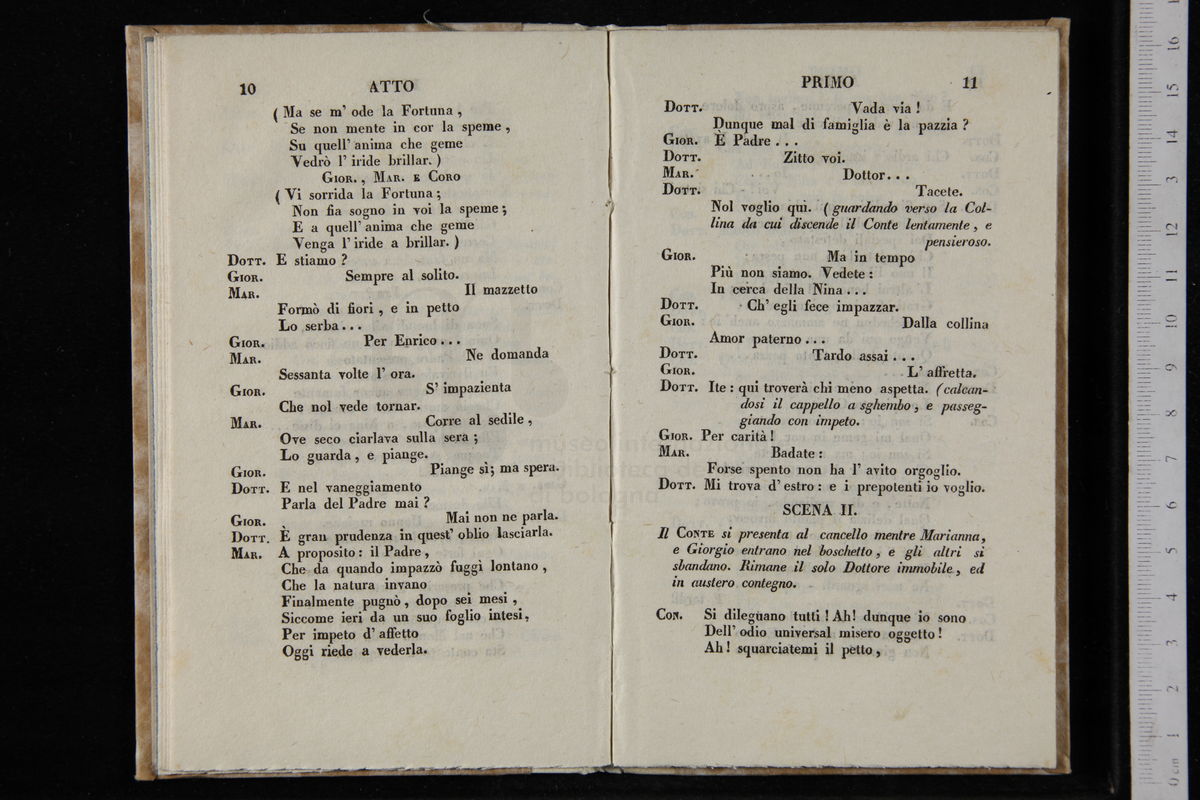 10 ATTO
( Ma se m' ode la Fortuna ,
Se non mente in cor la speme ,
Su quell' anima che geme
Vedrò l' iride brillar. )
GIOR. , MAR. E CORO
( Vi sorrida la Fortuna ;
Non fia sogno in voi la speme ;
E a quell' anima che geme
Venga l' iride a brillar. )
DOTT. E stiamo ?
GIOR. Sempre al solito.
MAR. Il mazzetto
Formò di fiori , e in petto
Lo serba . . .
GIOR. Per Enrico . . .
MAR. Ne domanda
Sessanta volte l' ora.
GIOR. S' impazienta
Che nol vede tornar.
MAR. Corre al sedile ,
Ove seco ciarlava sulla sera ;
Lo guarda , e piange.
GIOR. Piange sì; ma spera.
DOTT. E nel vaneggiamento
Parla del Padre mai ?
GIOR. Mai non ne parla.
DOTT. È gran prudenza in quest' oblio lasciarla.
MAR. A proposito : il Padre ,
Che da quando impazzò fuggì lontano ,
Che la natura invano
Finalmente pugnò , dopo sei mesi ,
Siccome ieri da un suo foglio intesi ,
Per impeto d' affetto
Oggi riede a vederla.
PRIMO 11
DOTT. Vada via !
Dunque mal di famiglia è la pazzia ?
GIOR. È Padre . . .
DOTT. Zitto voi.
MAR. Dottor. . .
DOTT. Tacete.
Nol voglio qui. ( guardando verso la Col-
lina da cui discende il Conte lentamente , e
pensieroso.
GIOR. Ma in tempo
Più non siamo. Vedete :
In cerca della Nina . . .
DOTT. Ch' egli fece impazzar.
GIOR. Dalla collina
Amor paterno . . .
DOTT. Tardo assai . . .
GIOR. L' affretta.
DOTT. Ite : qui troverà chi meno aspetta. (calcan-
dosi il cappello a sghembo , e passeg-
giando con impeto.
GIOR. Per carità !
MAR. Badate :
Forse spento non ha l' avito orgoglio.
DOTT. Mi trova d' estro : e i prepotenti io voglio.
SCENA II.
Il CONTE si presenta al cancello mentre Marianna,
e Giorgio entrano nel boschetto , e gli altri si
sbandano. Rimane il solo Dottore immobile , ed
in austero contegno.
CON. Si dileguano tutti ! Ah! dunque io sono
Dell' odio universal misero oggetto !
Ah ! squarciatemi il petto ,
museo inter
biblioteca de
di bologna
0 cm 1 2 3 4 5 6 7 8 9 10 11 12 13 14 15 16